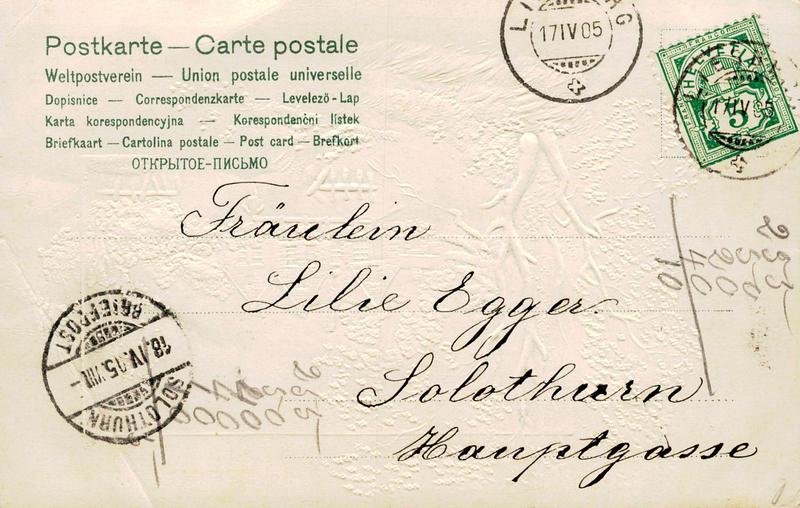 Postkarte — Carte postale
Weltpostverein — Union postale universelle
Dopisnice — Correspondenzkarte — Levelező-Lap
Karta korespondencyjna — Korespondenční lístek
Briefkaart — Cartolina postale — Post card — Brefkort
ОТКРЫТОЕ-ПИСЬМО
17 IV 05
HELVETIA
5
Fräulein
Lilie Egger
Solothurn
Hauptgasse
BRIEFPOST
18.IV.05.VIII-
SOLOTHURN